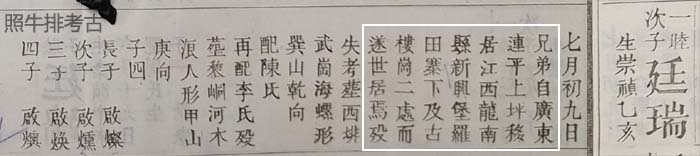 照牛排考古
一睦
次子 廷瑞
生崇禎乙亥
七月初九日
兄弟自廣東
連平上坪移
居江西龍南
縣新興堡羅
田寨下及古
樓崗二處而
遂世居焉歿
失考葬西排
武崗海螺形
巽山乾向
配陳氏
再配李氏歿
葬黎峒河木
浪人形甲山
庚向
子四
長子 啟燦
次子 啟燻
三子 啟煥
四子 啟燠